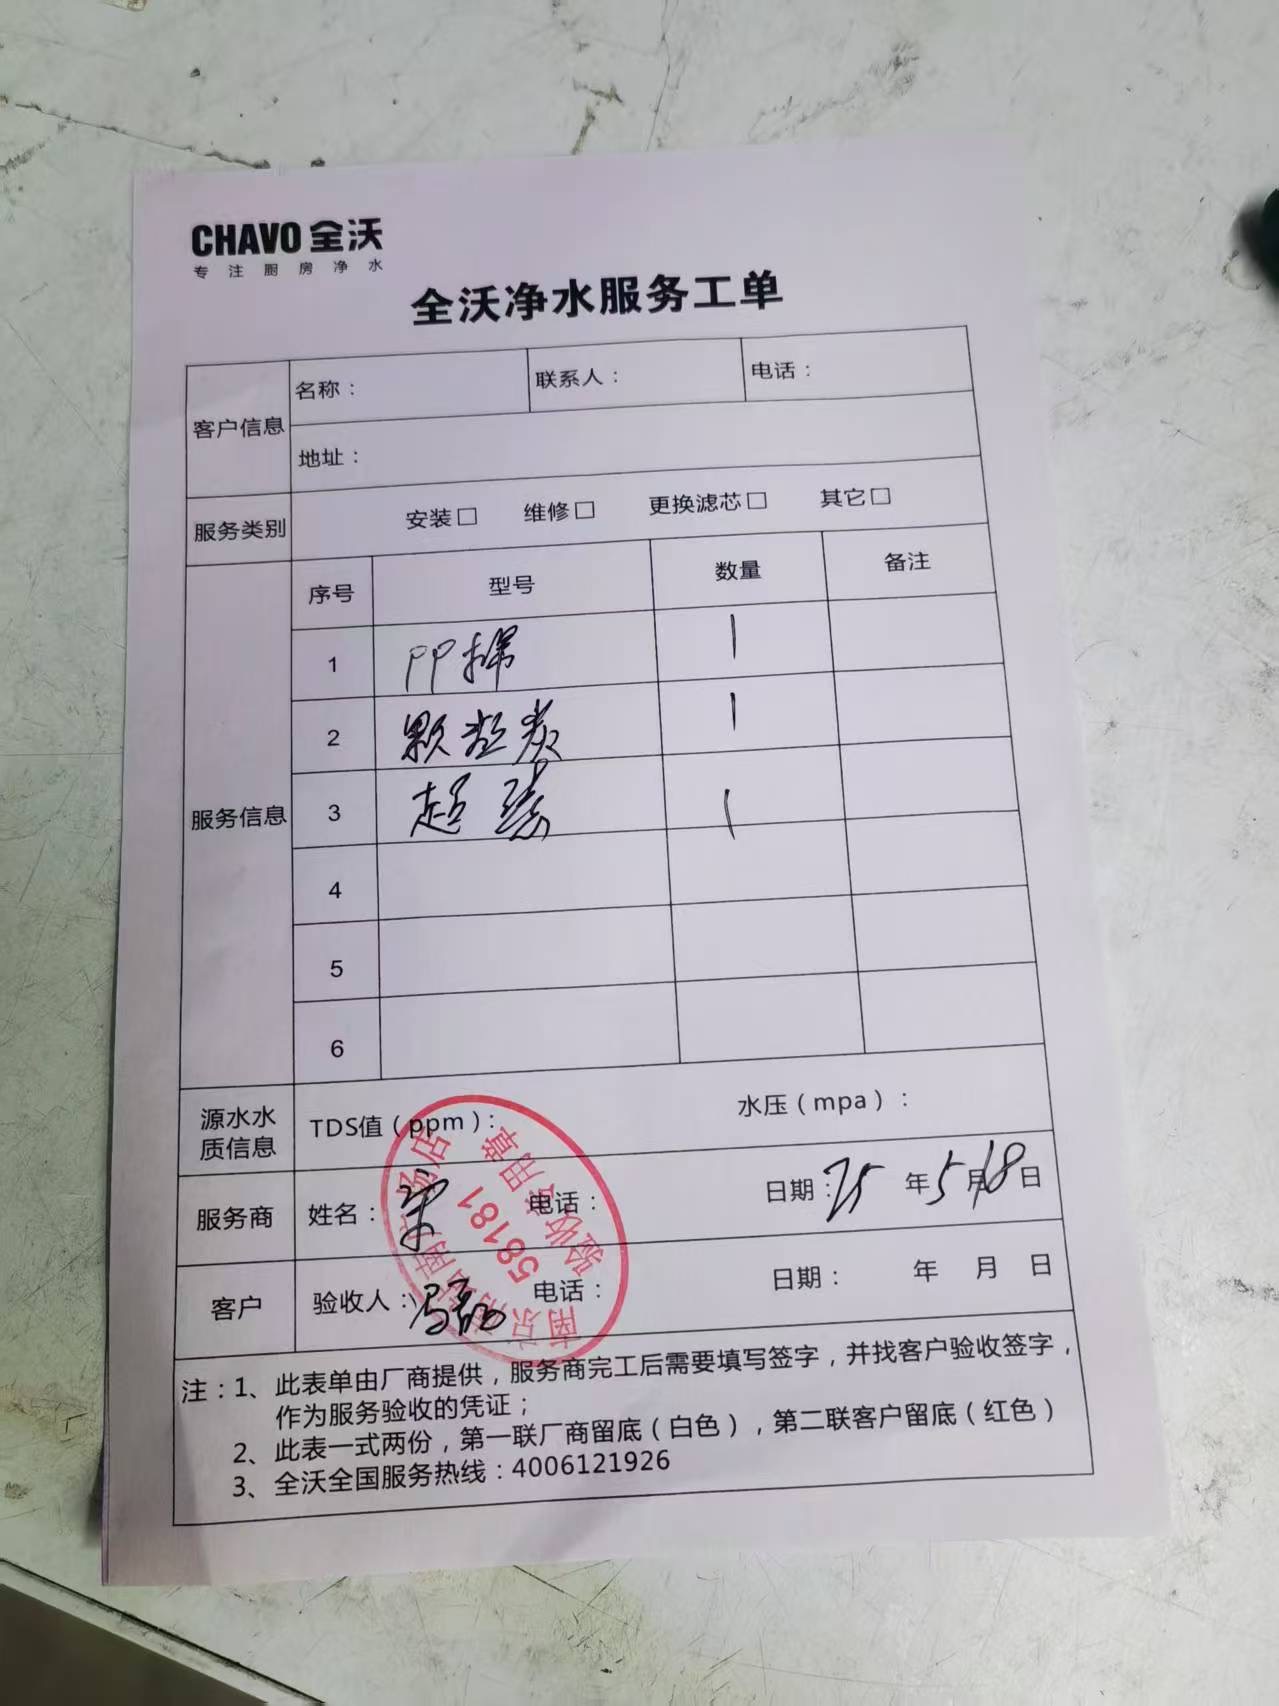 CHAVO 全沃
专注厨房净水
全沃净水服务工单
客户信息 名称： 联系人： 电话：
地址：
服务类别 安装□ 维修□ 更换滤芯□ 其它□
服务信息 序号 型号 数量 备注
1 PP棉 1
2 颗粒炭 1
3 超滤 1
4
5
6
源水水质信息 TDS值（ppm）： 水压（mpa）：
服务商 姓名：宋 电话： 日期：25 年 5 月 18 日
客户 验收人： 电话： 日期： 年 月 日
58181
验收专用章
注：1、此表单由厂商提供，服务商完工后需要填写签字，并找客户验收签字，
作为服务验收的凭证；
2、此表一式两份，第一联厂商留底（白色），第二联客户留底（红色）
3、全沃全国服务热线：4006121926